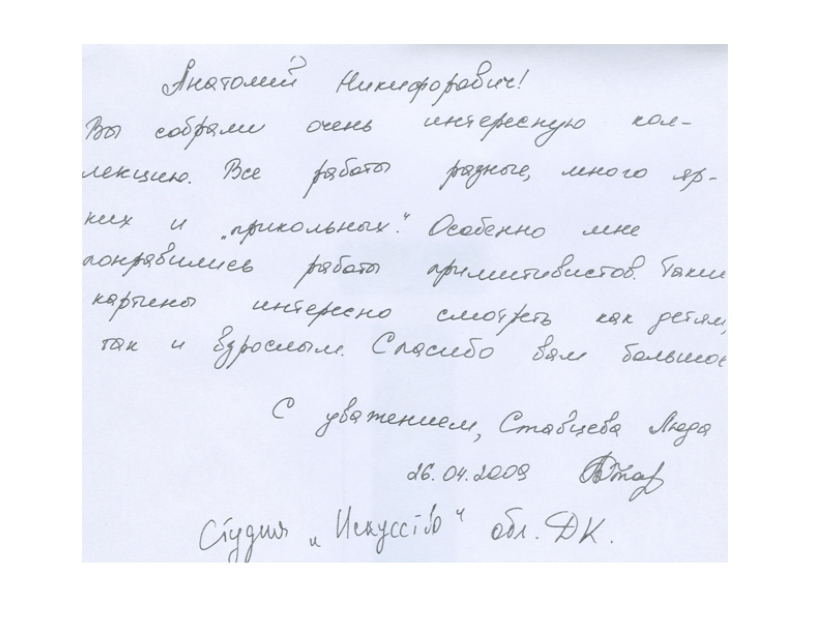 Анатолий Никифорович!
Вы собрали очень интересную кол-
лекцию. Все работы разные, много яр-
ких и „прикольных". Особенно мне
понравились работы примитивистов. Такие
картины интересно смотреть как детям,
так и взрослым. Спасибо вам большое
С уважением, Ставцева Люда
26.04.2009
Студия „Искусство" обл. ДК.